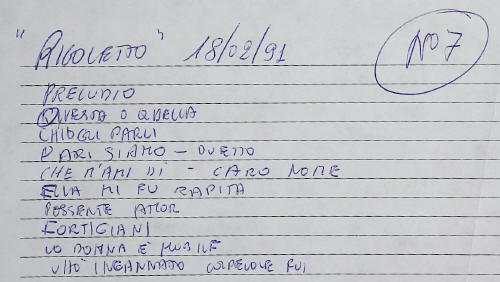 "RIGOLETTO" 18/02/91
Nº 7
PRELUDIO
QUESTA O QUELLA
CHI DEI PARLI
PARI SIAMO - DUETTO
CHE M'AMI DI - CARO NOME
ELLA MI FU RAPITA
POSSENTE AMOR
CORTIGIANI
LA DONNA È MOBILE
V'HO INGANNATO COLPEVOLE FUI